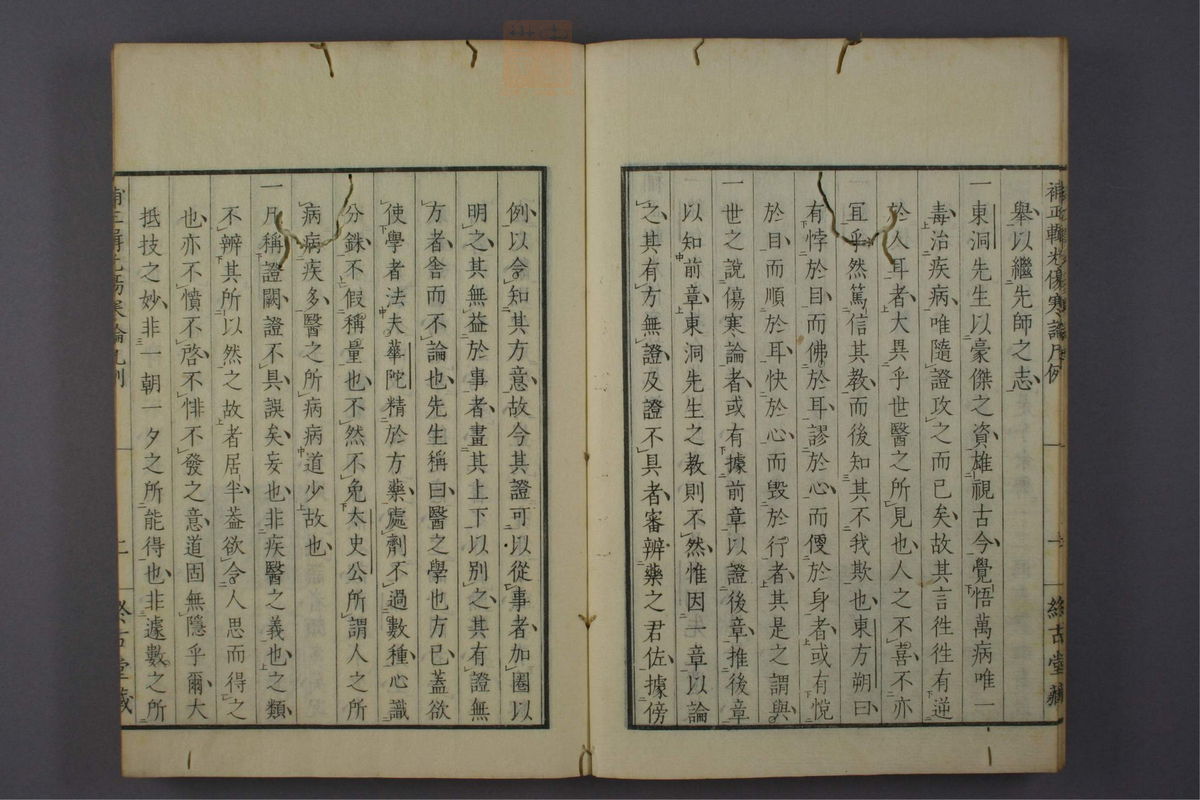 補正輯光傷寒論凡例
舉以繼先師之志
一東洞先生以豪傑之資雄視古今覺悟萬病唯一
毒治疾病唯隨證攻之而已矣故其言徃徃有逆
於人耳者大異乎世醫之所見也人之不喜不亦
冝乎然篤信其教而後知其不我欺也東方朔曰
有悖於目而佛於耳謬於心而便於身者或有悅
於目而順於耳快於心而毀於行者其是之謂與
一世之說傷寒論者或有據前章以證後章推後章
以知前章東洞先生之教則不然惟因先章以論
之其有方無證及證不具者審辨藥之君佐據傍
例以令知其方意故今其證可以從事者加圈以
明之其無益於事者畫其上下以別之其有證無
方者舍而不論也先生稱曰醫之學也方已蓋欲
使學者法夫華陀精於方藥處劑不過數種心識
分銖不假稱量也不然不免太史公所謂人之所
病病疾多醫之所病病道少故也
一凡稱證闕證不具誤矣妄也非疾醫之義也之類
不辨其所以然之故者居半蓋欲令人思而得之
也亦不憤不啓不悱不發之意道固無隱乎爾大
抵技之妙非一朝一夕之所能得也非遽數之所